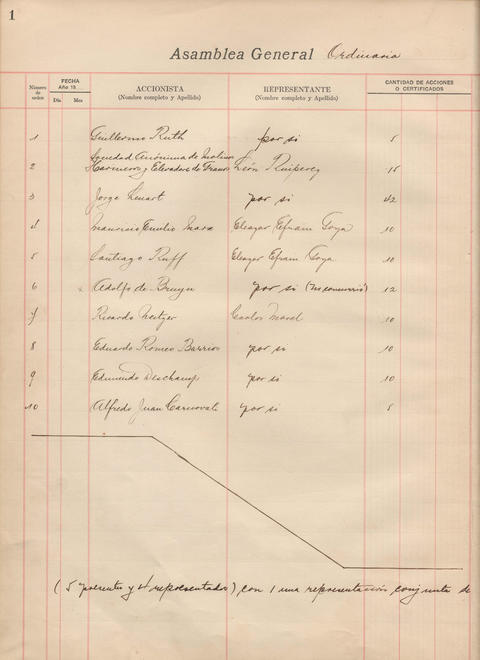 1
Asamblea General Ordinaria
Número de orden
FECHA
Año 19
Día Mes
ACCIONISTA
(Nombre completo y Apellido)
REPRESENTANTE
(Nombre completo y Apellido)
CANTIDAD DE ACCIONES
O CERTIFICADOS
1 Guillermo Ruth por si 5
Sociedad Anónima de Molinos
2 Harineros y Elevadores de Granos León Ruiperez 15
3 Jorge Lenart por si 42
4 Mauricio Emilio Marx Eleazar Efrain Goya 10
5 Santiago Ruff Eleazar Efrain Goya 10
6 x Adolfo de Bruyn por si (No concurrió) 12
7 Ricardo Carlos Morel 10
8 Eduardo Romeo Barrios por si 10
9 Edmundo Deschamps por si 10
10 Alfredo Juan Carnovali por si 5
(5 presentes y 4 representados) con 1 una representación conjunta de